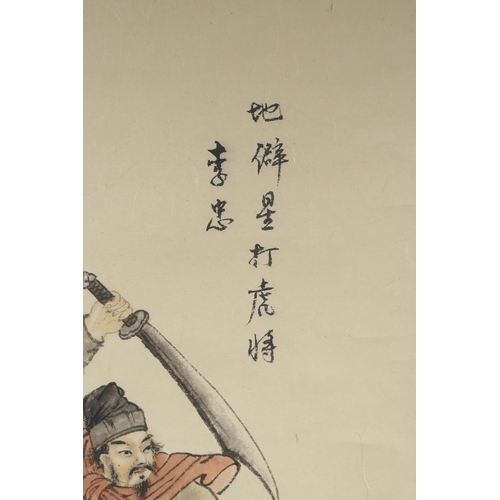 地僻星打虎将
李忠